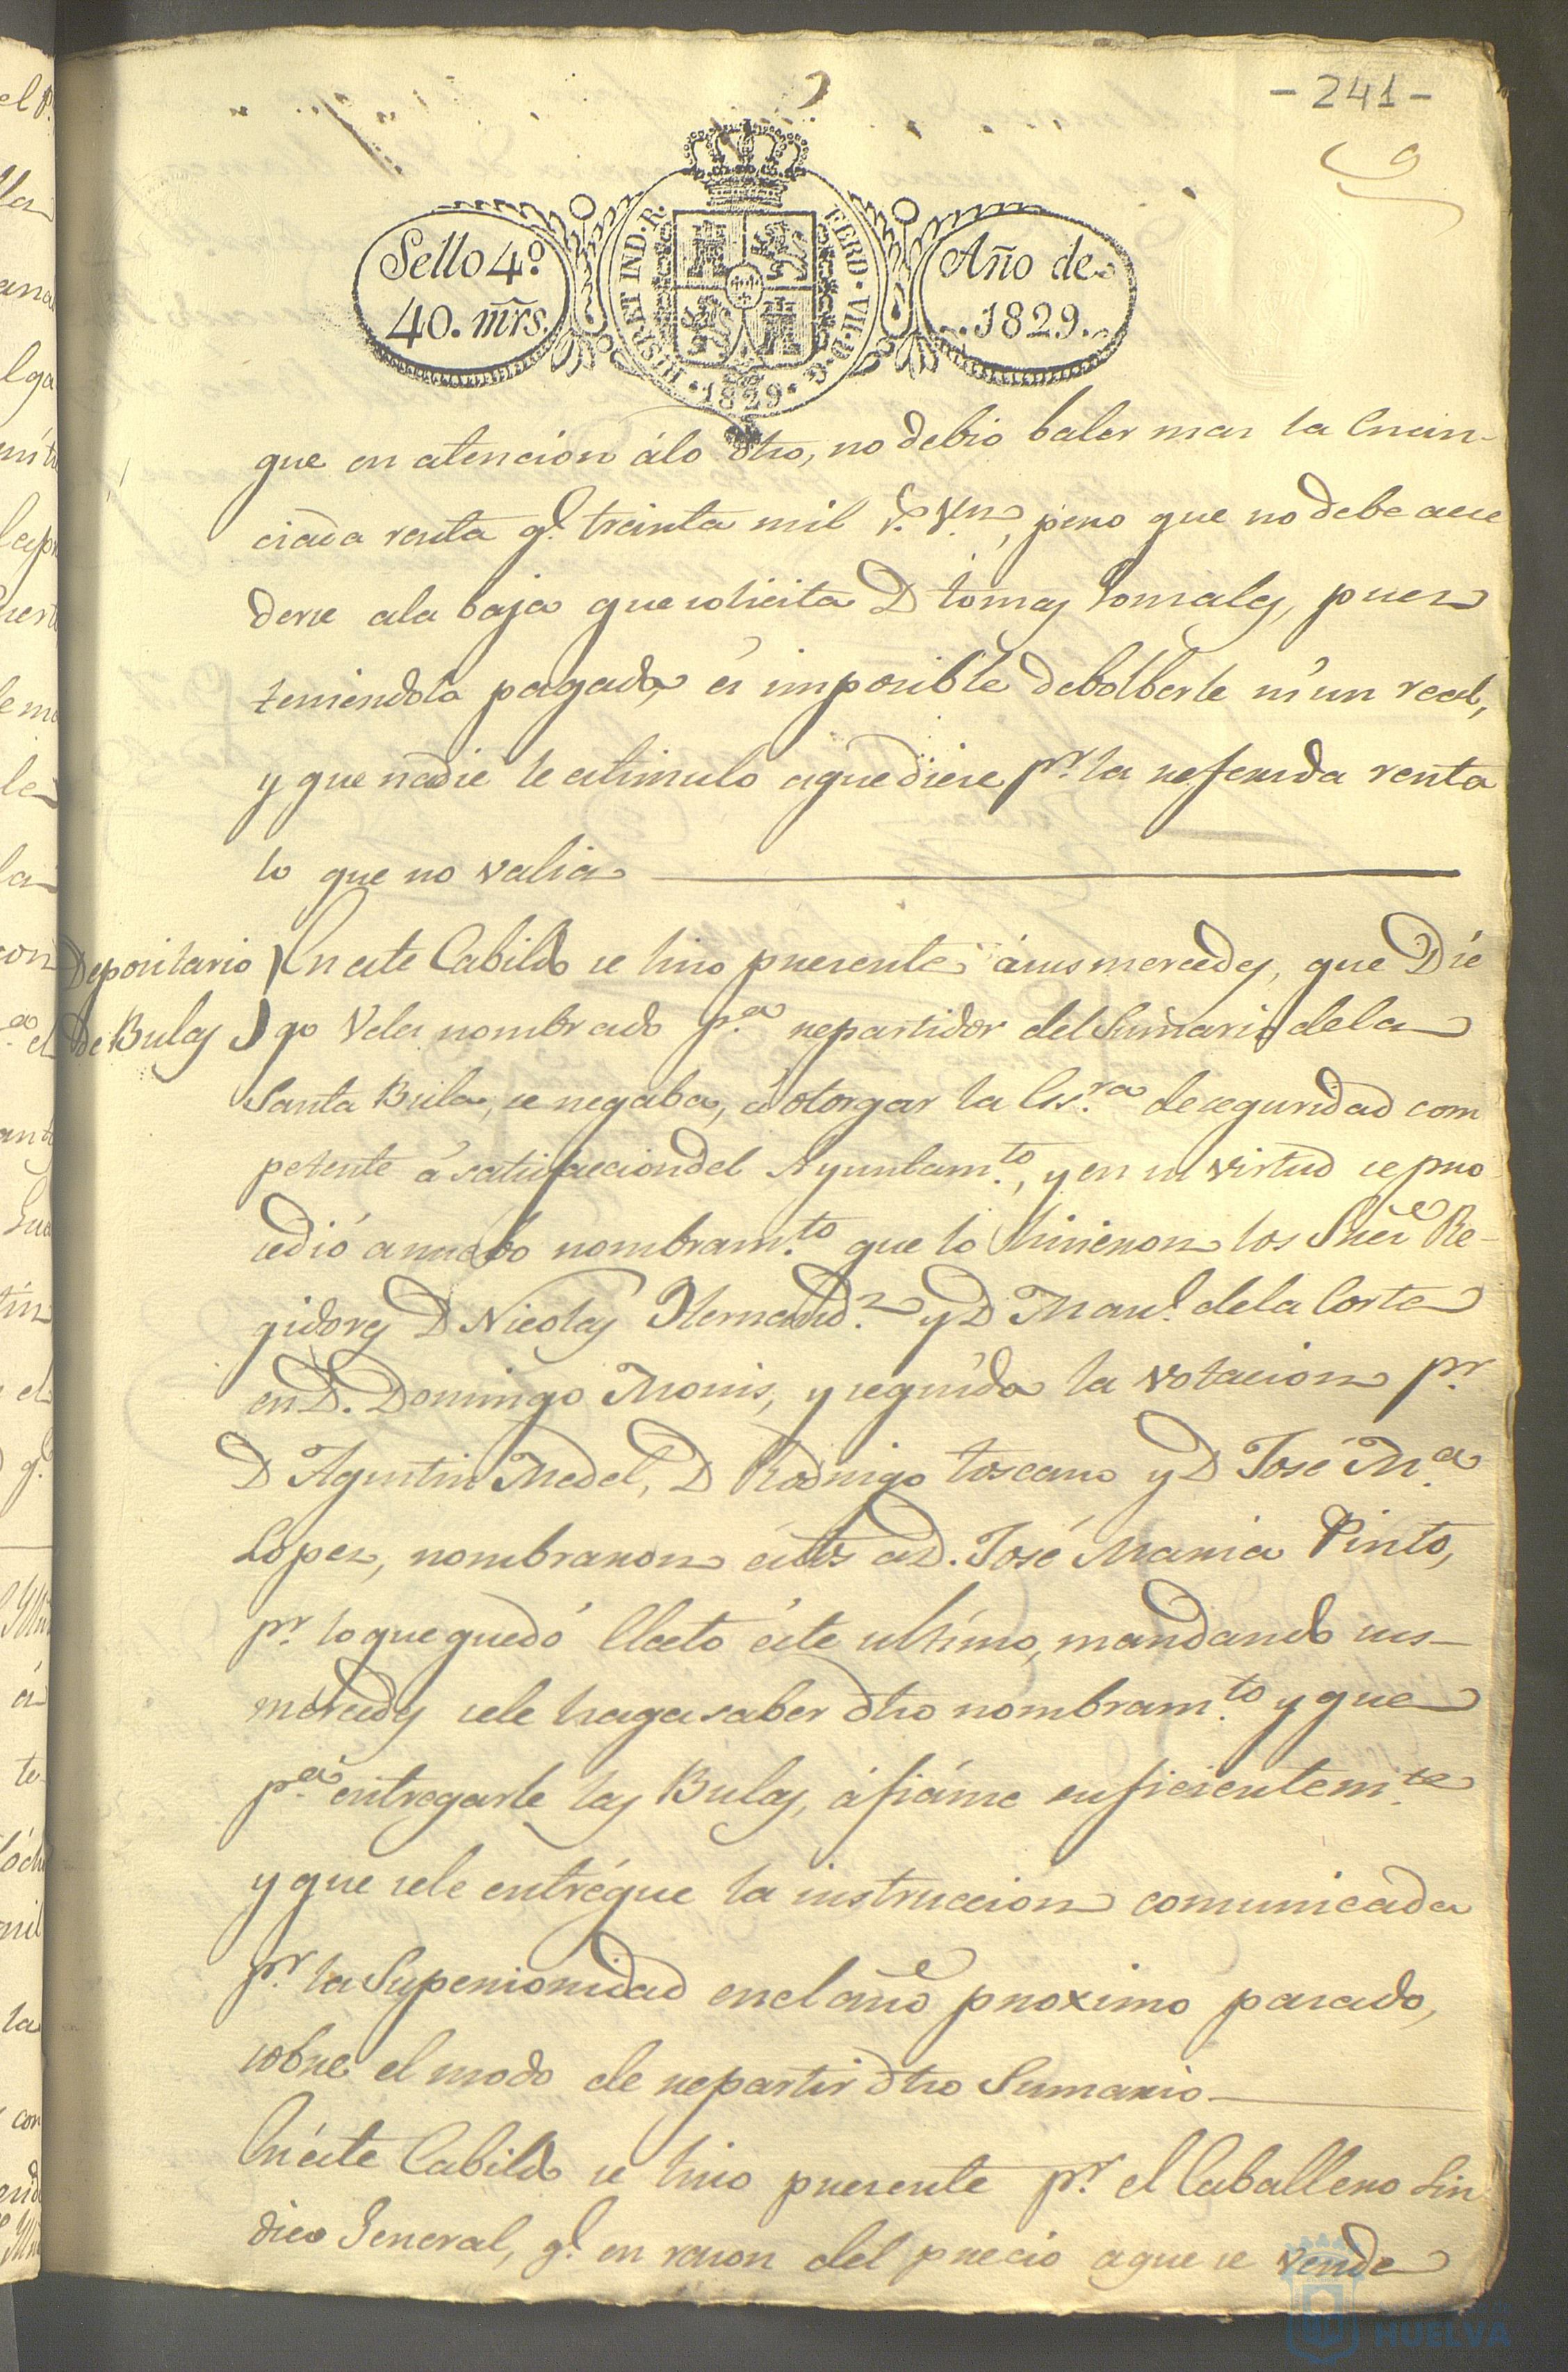 - 241 -
9
Sello 4º
40. mrs.
HISP. ET IND. R. FERD. VII. D. G. 1829
Año de
1829.
que en atencion álo dho, no debió baler mas la enun-
ciada renta q.e treinta mil r.s v.n, pero que no debe acce
derse ala baja que solicita D Tomas Gonzales, pues
teniendola pagada, és imposible debolberle ni un real,
y que nadie le estimulo aque diese p.r la referida renta
lo que no valia
Depositario
de Bulas
En este Cabildo se hizo presente ásus mercedes, que Die
go Vela nombrado p.a repartidor del Sumario dela
Santa Bula, se negaba, á otorgar la Es.ra de seguridad com
petente á satisfaccion del Ayuntam.to, y en su virtud se pro
cedió anuebo nombram.to que lo hicieron los Sres Re-
gidores D Nicolas Hernand.z y D Man.l dela Corte
en D. Domingo Monis, y seguida la votacion p.r
D Agustin Medel, D Rodrigo Toscano y D José M.a
Lopez, nombraron éstos a D. José Maria Pinto,
p.r lo que quedó Electo éste ultimo, mandando sus-
mercedes sele haga saber dho nombram.to y que
p.a entregarle las Bulas, áfiánse suficientem.te
y que sele entrégue la instruccion comunicada
p.r la Superioridad enel año proximo pasado,
sobre el modo de repartir dho Sumario
En éste Cabildo se hizo presente p.r el Caballero Sin
dico General, q.e en razon del precio aque se vende
HUELVA